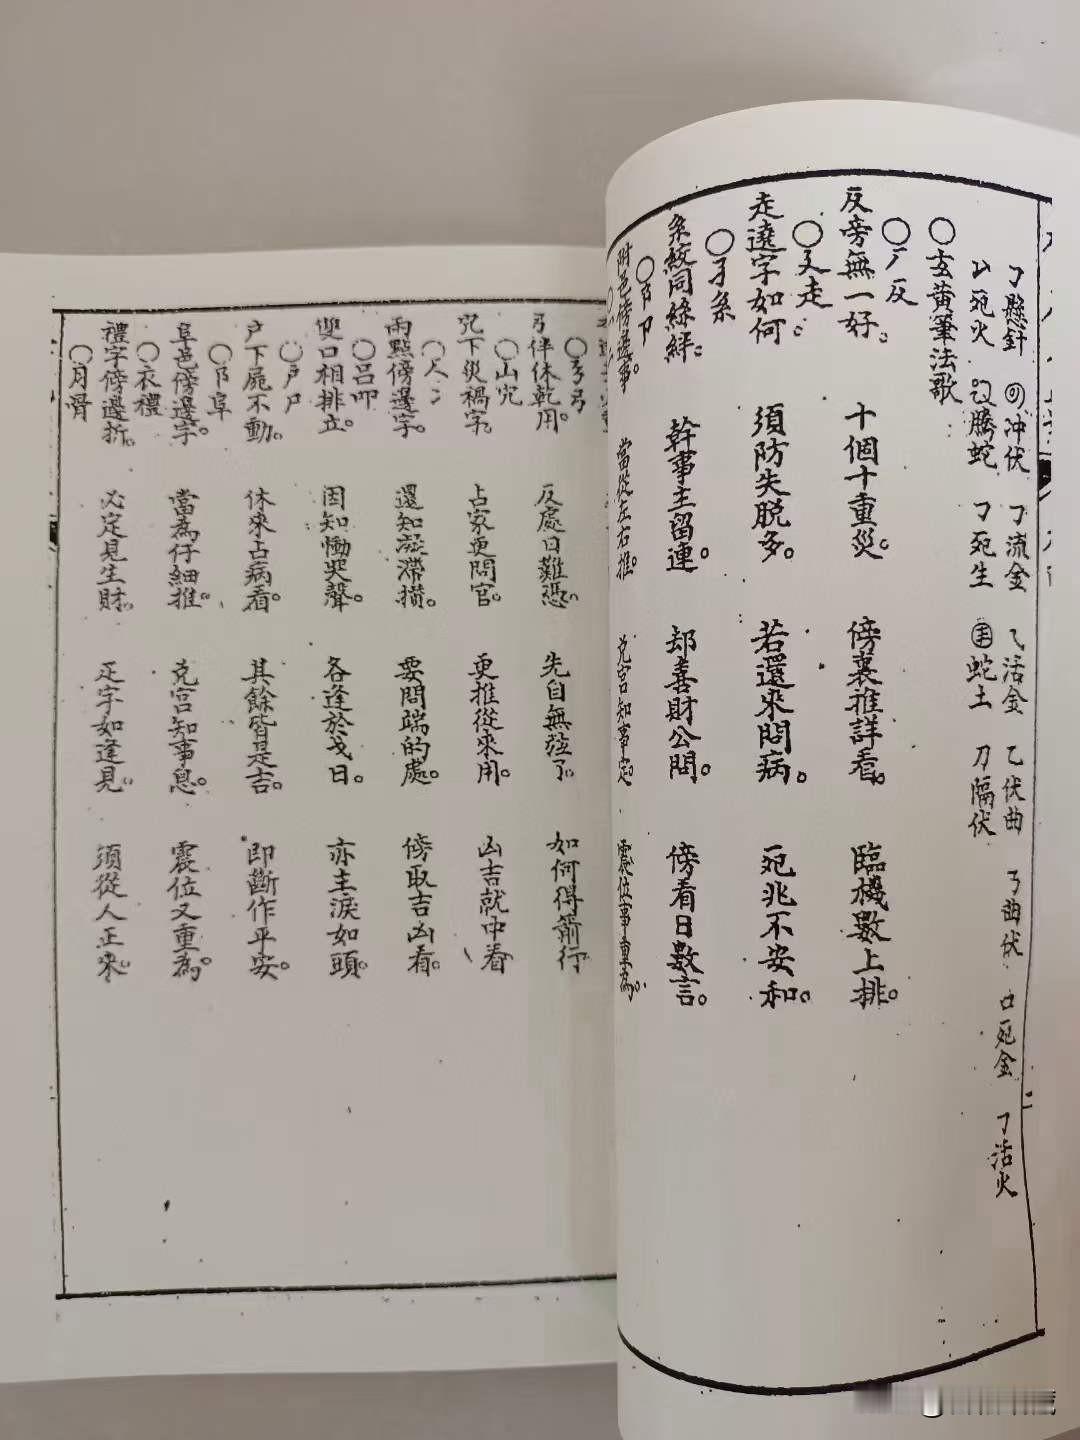 ㇆懸針 冲伏 ㇆流金 ㇂活金 乙伏曲 ㄋ曲伏 口死金 ㇆活火
死火 騰蛇 ㇆死生 蛇土 刀隔伏
○玄黃筆法歌
○厂反
反旁無一好。 十個十重災。 傍裏推詳看。 臨機數上排。
○廴走
走遶字如何。 須防失脫多。 若還來問病。 死兆不安和。
○孑糸
糸絞同絲絆。 幹事主留連。 却喜財公問。 傍看日數言。
○阝卩
附邑傍邊事。 當從左右推。 兌宮知事定。 震位事重為。
○弓
弓伴休乾用。 反處日難憑。 先自無弦了。 如何得箭行
○山穴
穴下災禍字。 占家更問官。 更推從來用。 凶吉就中看
○人冫
兩點傍邊字。 還知凝滯攢。 要問端的處。 傍取吉凶看。
○吕吅
雙口相排立。 因知慟哭聲。 各逢於戈日。 亦主淚如頭。
○戶尸
户下屍不動。 休來占病看。 其餘皆是吉。 即斷作平安。
○阝阜
阜邑傍邊字。 當為仔細推。 兌宮知事息。 震位又重為。
○衣禮
禮字傍邊折。 必定見生財。 疋字如逢見。 須從人正來。
○月骨